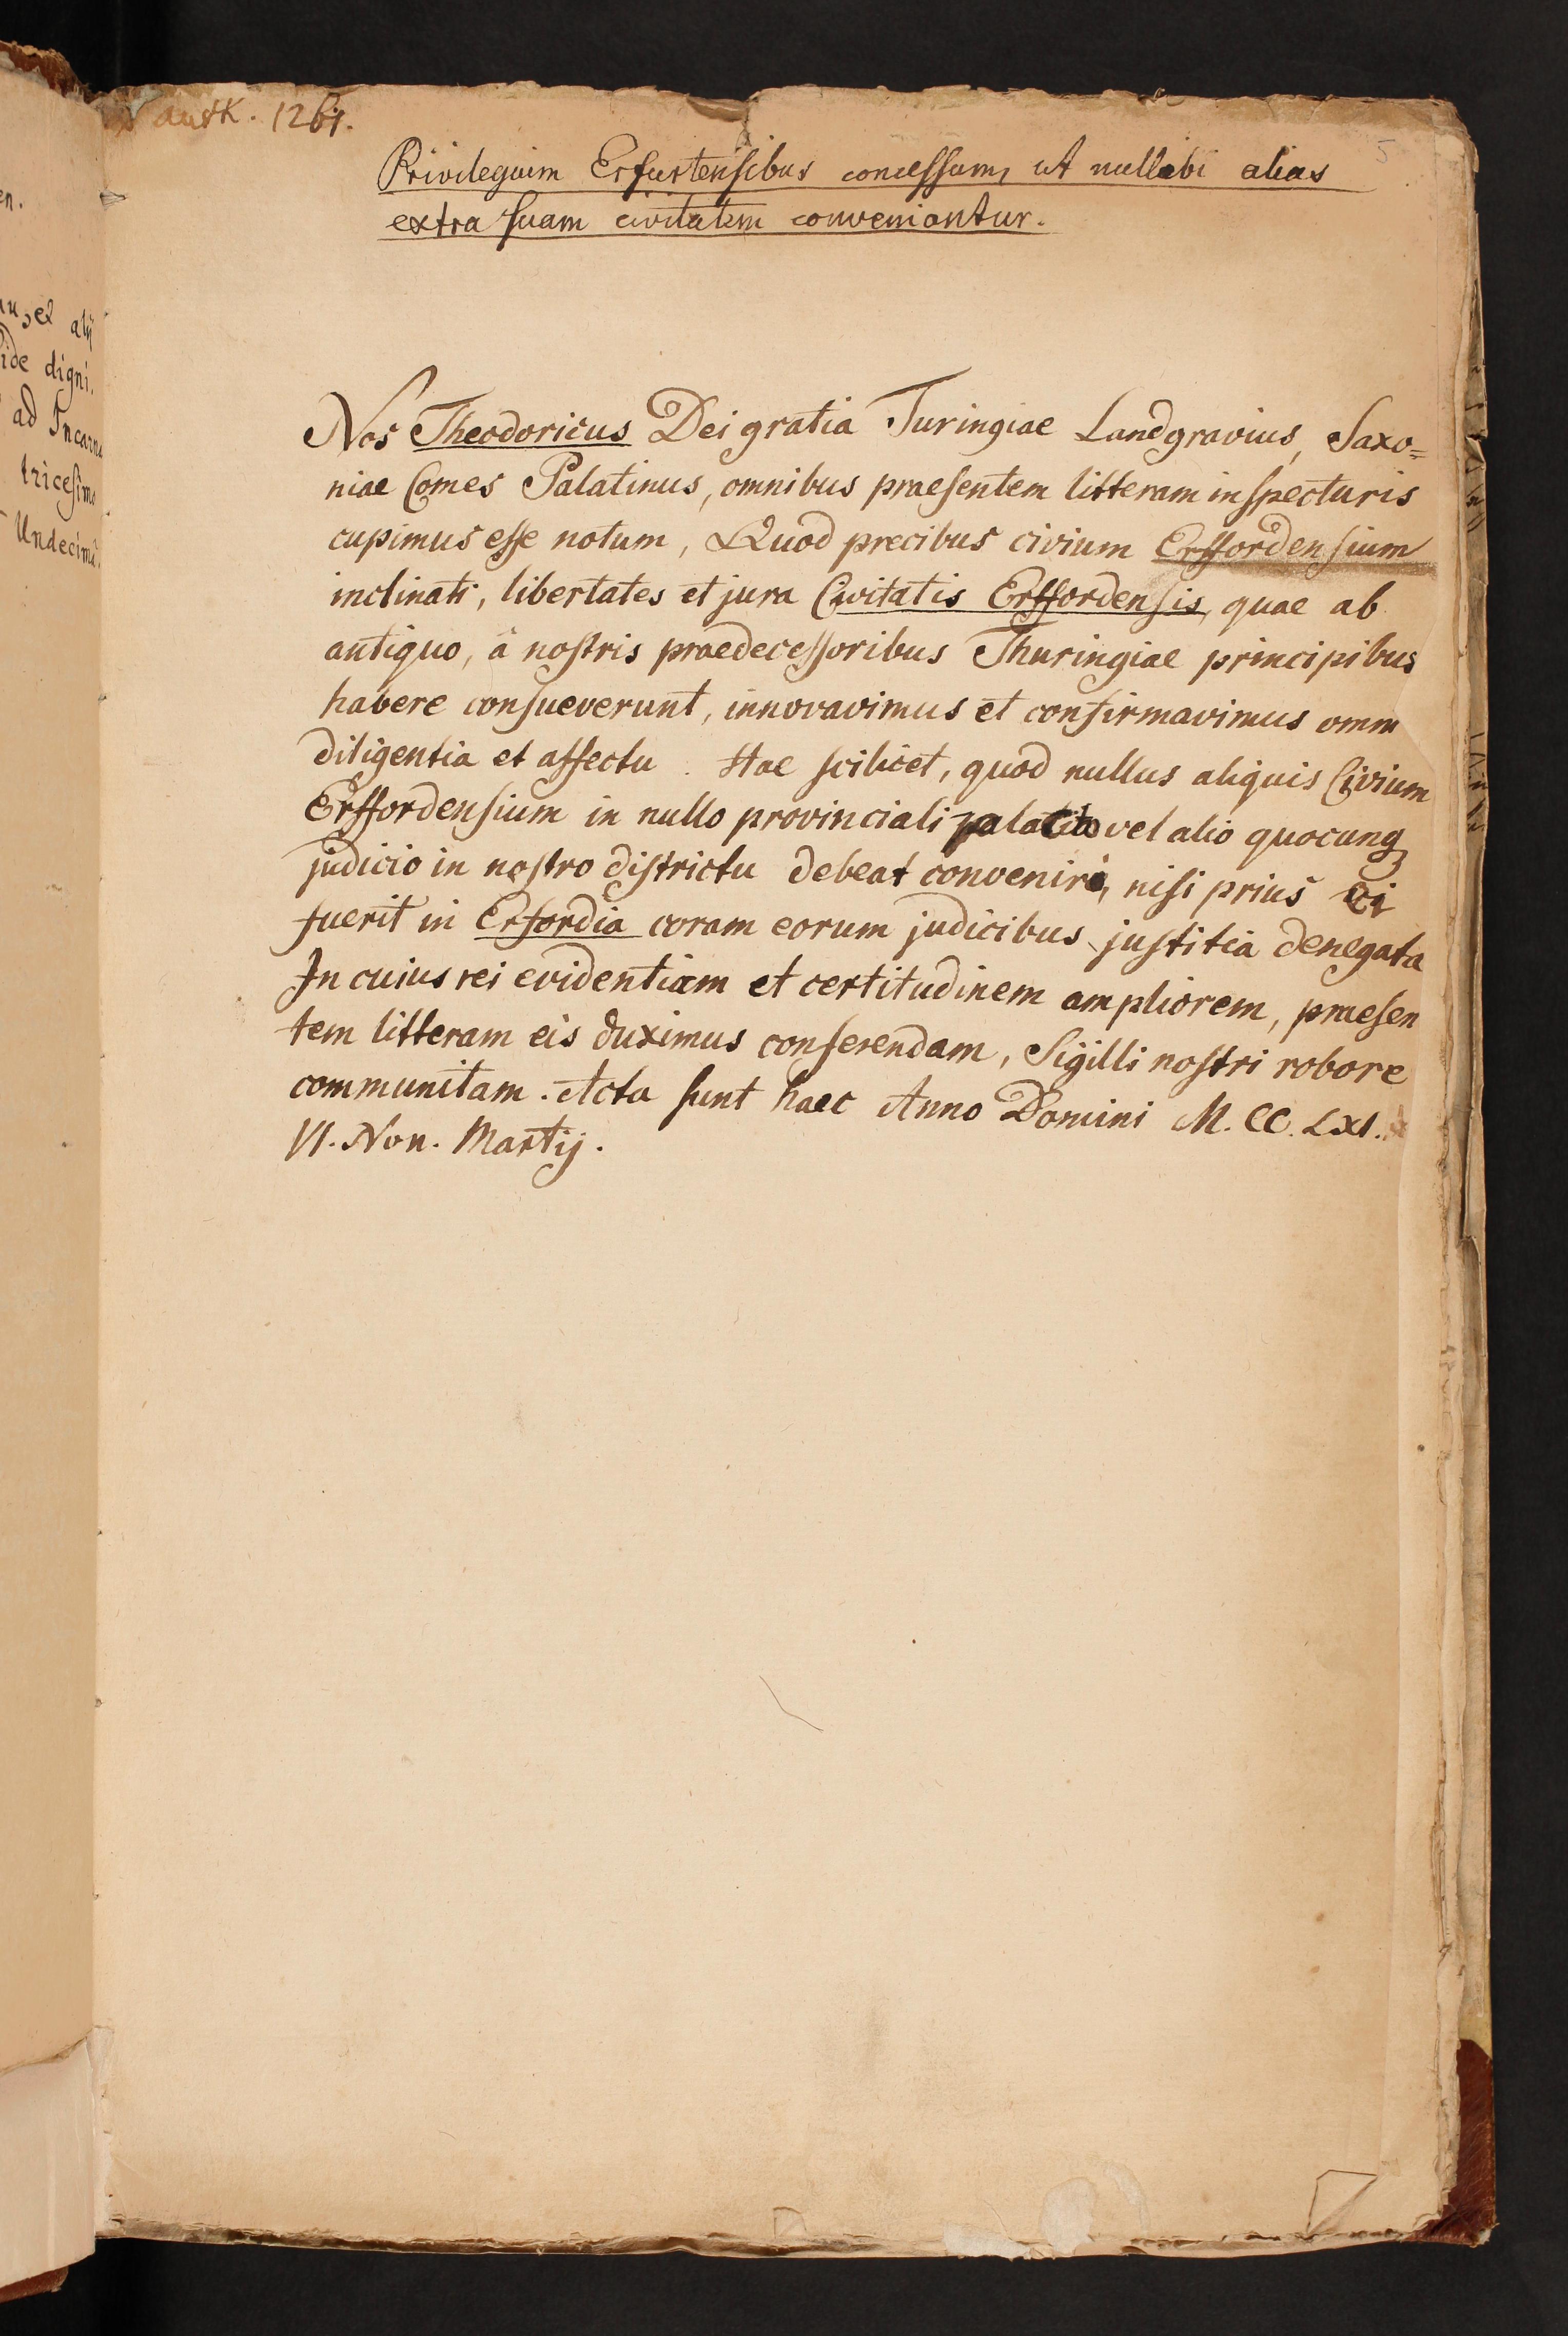 autk. 1261.
5
Privilegium Erfurtensibus concessum, ut nullibi alias
extra suam civitatem conveniantur.
Nos Theodoricus Dei gratia Turingiae Landgravius, Saxo=
niae Comes Palatinus, omnibus praesentem litteram inspecturis
cupimus esse notum, Quod precibus civium Erffordensium
inclinati, libertates et jura Civitatis Erffordensis, quae ab
antiquo, â nostris praedecessoribus Thuringiae principibus
habere consueverunt, innovavimus et confirmavimus omni
diligentia et affectu. Hac scilicet, quod nullus aliquis Civium
Erffordensium in nullo provinciali palatio vel alio quocunq
judicio in nostro districtu debeat conveniri, nisi prius ei
fuerit in Erfordia coram eorum judicibus justitia denegata
In cuius rei evidentiam et certitudinem ampliorem, praesen
tem litteram eis duximus conferendam, Sigilli nostri robore
communitam. Acta sunt haec Anno Domini M. CC. LXI.
VI. Non. Martij.
en.
au, et alij
ide digni.
ad Incarna
tricesimo
Undecima.